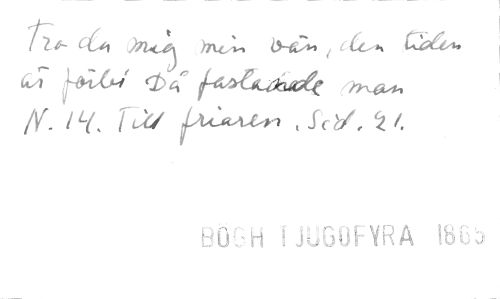 Tro du mig min vän, den tiden
är förbi Då fastade man
N. 14. Till friaren. Sid. 21.
BÖGH TJUGOFYRA 1865